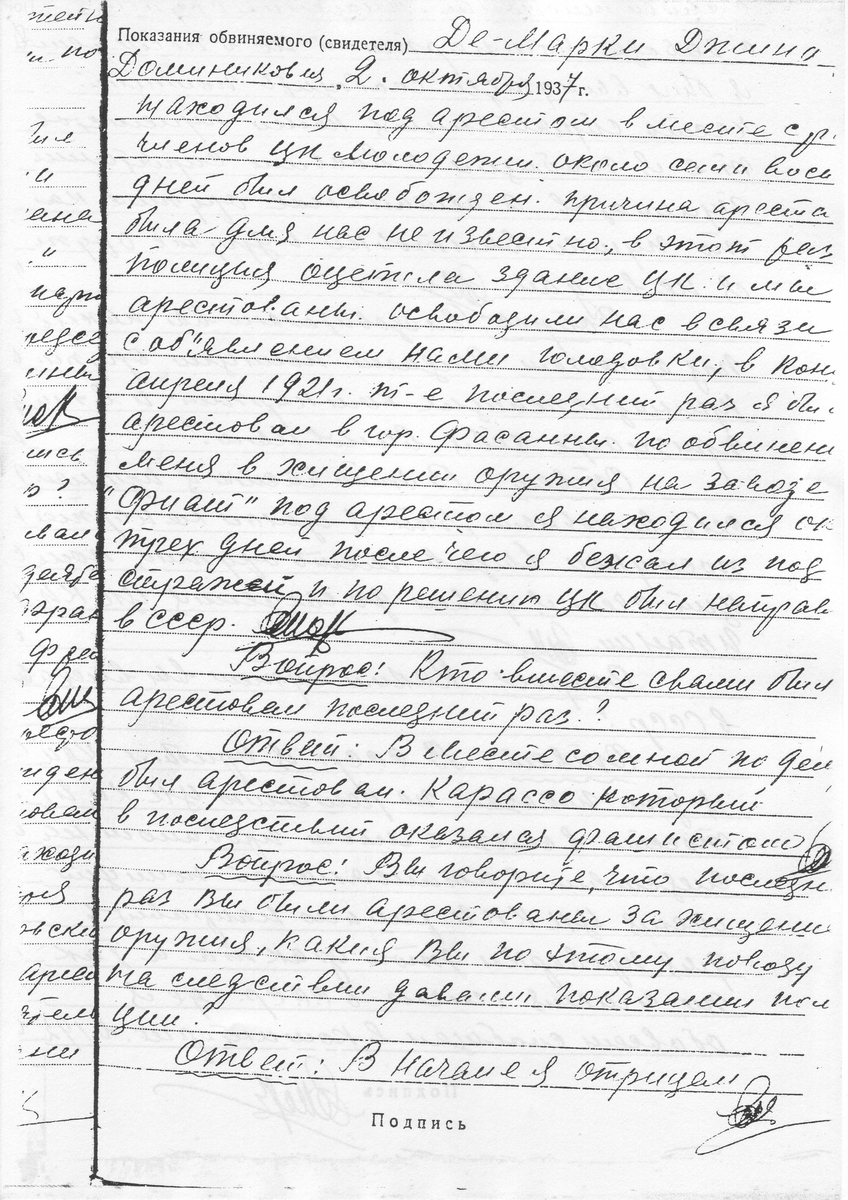 Показания обвиняемого (свидетеля) Де-Марки Джино
Доминикович, 2. октября 1937 г.
находился под арестом вместе с
членов ЦК молодежи. около семи вось
дней был освобожден. причина ареста
была для нас не известно, в этот раз
полиция оцепила здание ЦК и мы
арестованы. освободили нас в связи
с об"явлением нами голодовки, в кон
апреля 1921 г. т-е последний раз я был
арестован в гор. Фасанны. по обвинени
меня в хищении оружия на заводе
"Фиат" под арестом я находился ок
трех дней после чего я бежал из под
стражей и по решению ЦК был направ
в СССР.
Вопрос: Кто вместе свами был
арестован последний раз?
Ответ: Вместе сомной по дел
был арестован. Карассо который
в последствии оказался фашистом
Вопрос: Вы говорите, что последн
раз вы были арестованы за хищени
оружия, какия вы по этому поводу
на следствии давали показании пол
ции?
Ответ: В начале я отрицал
Подпись